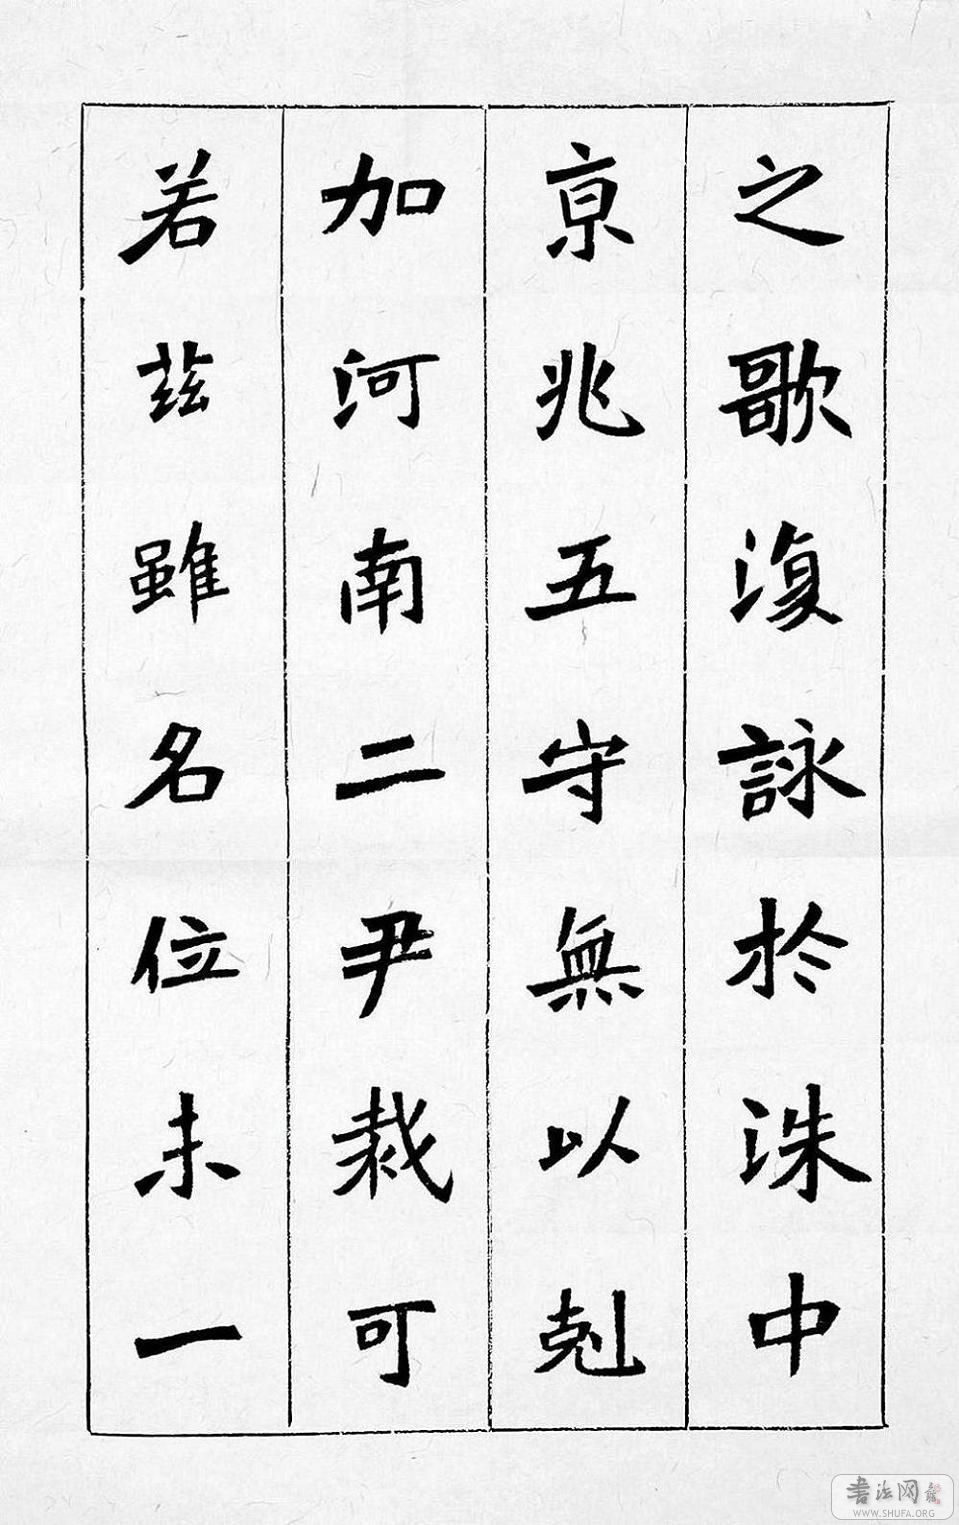 之歌復詠於洙中
京兆五守無以剋
加河南二尹裁可
若茲雖名位未一
書法网
WWW.SHUFA.ORG